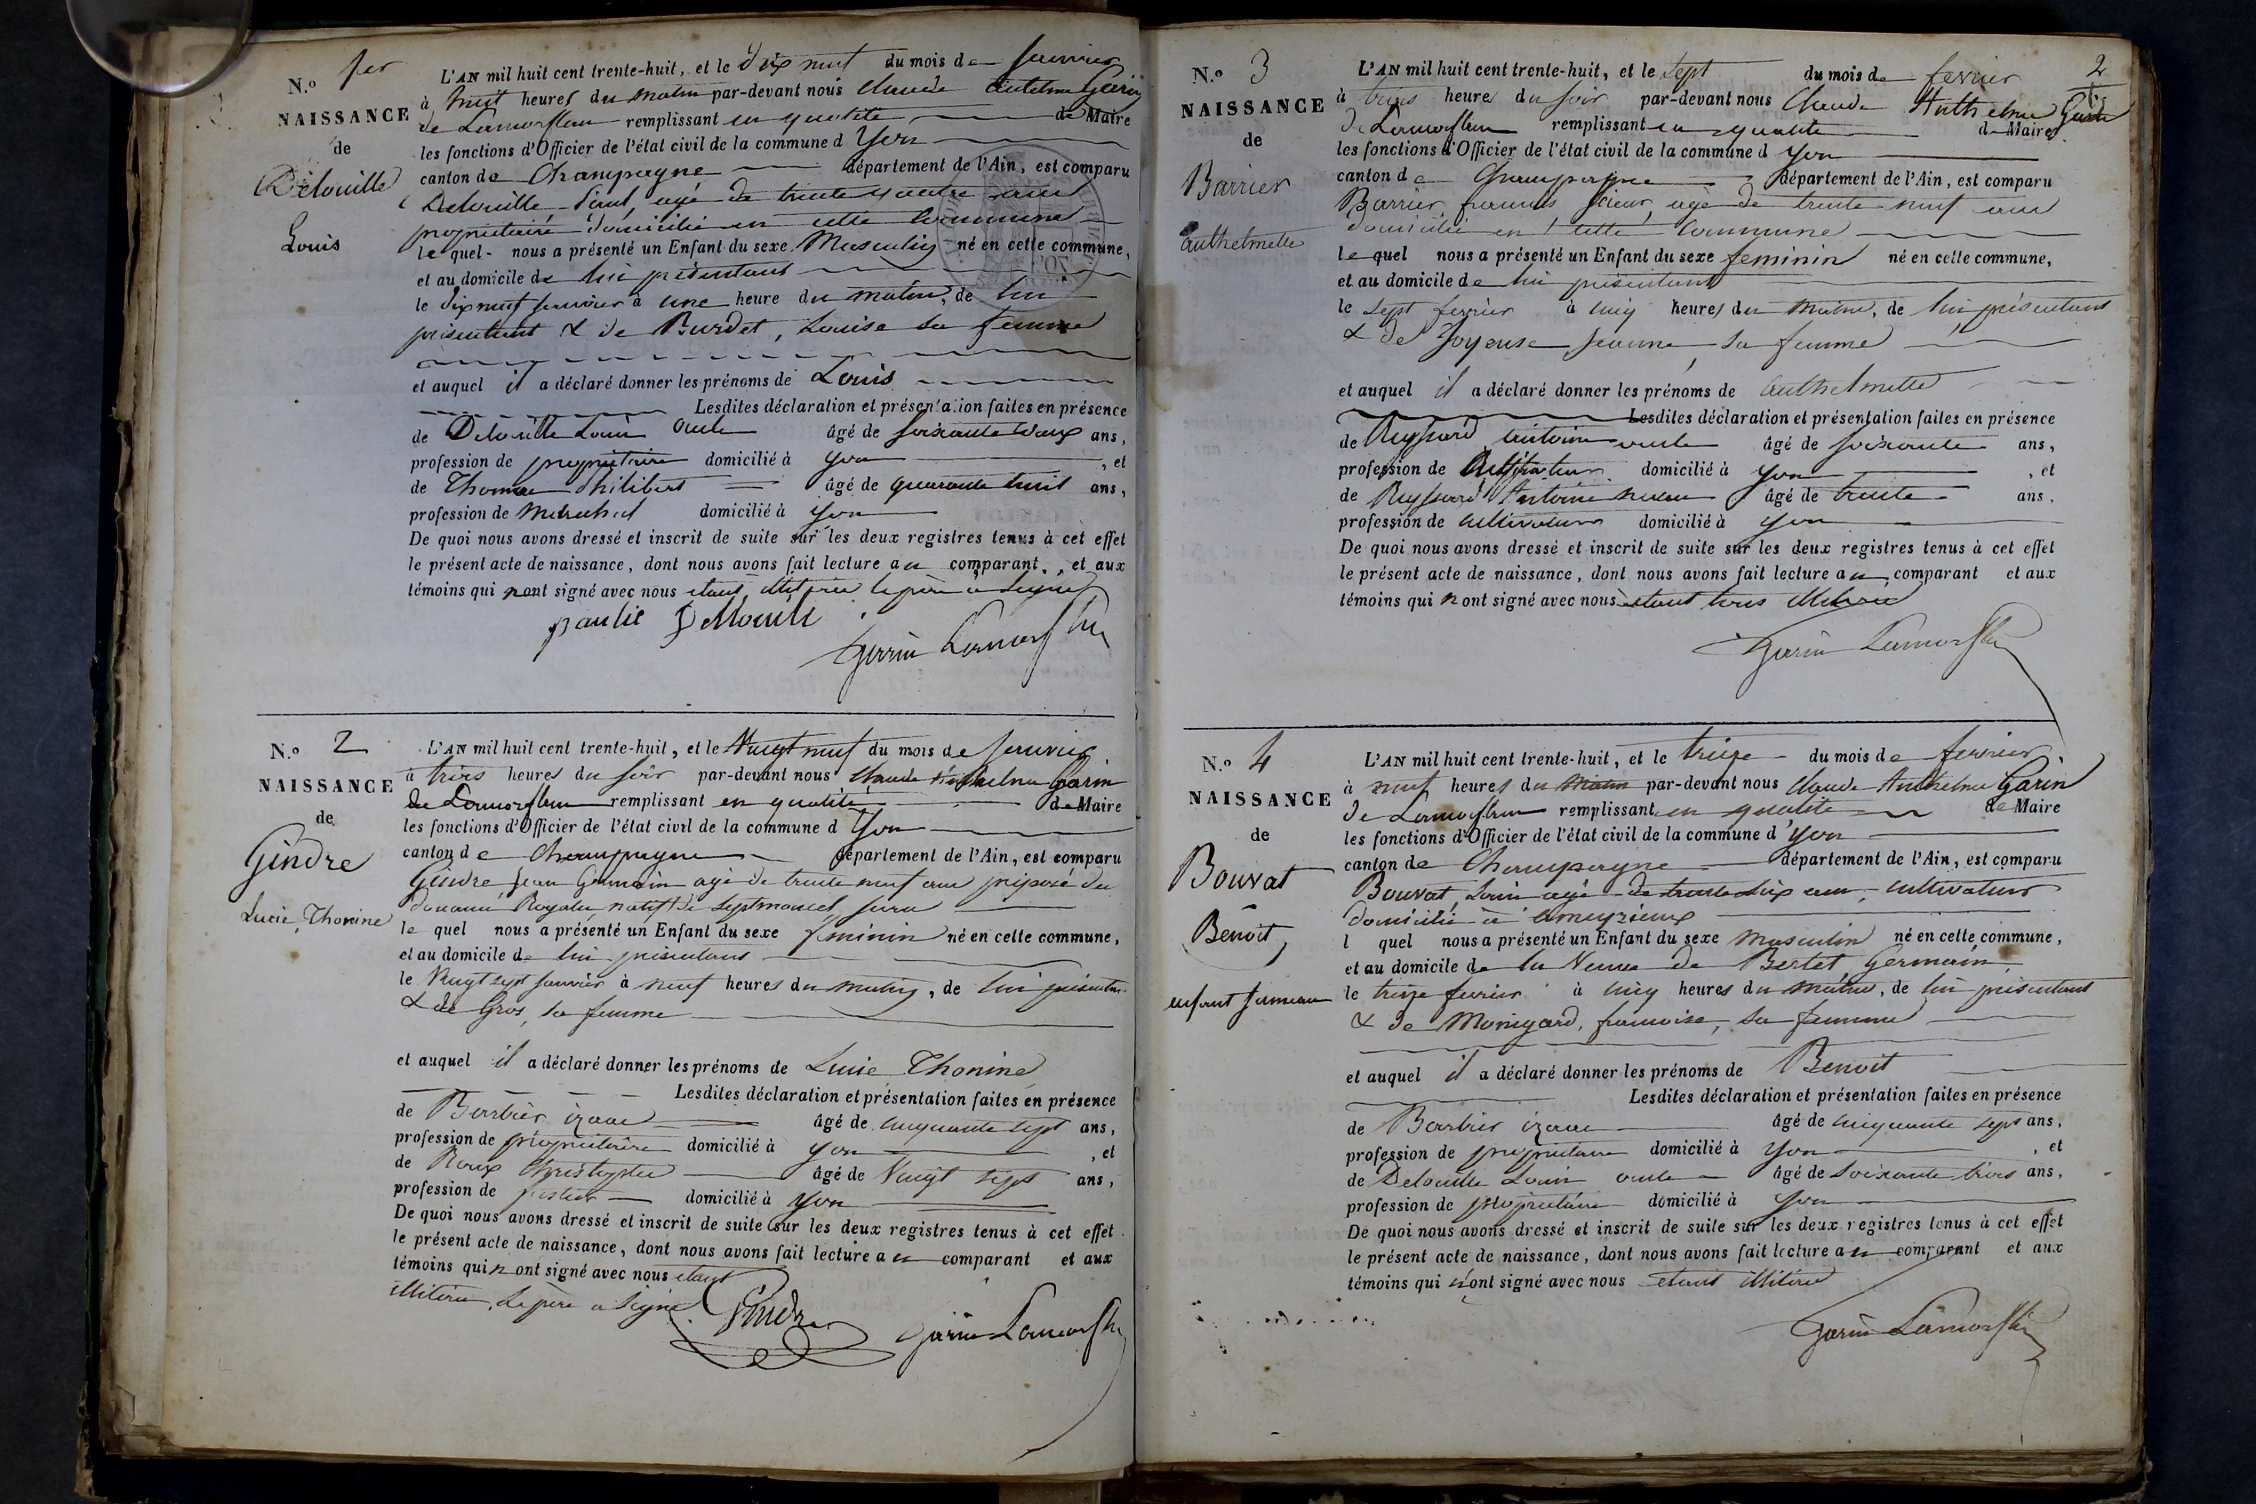 N.o 1er
NAISSANCE
de
Delouille
Louis
L'AN mil huit cent trente-huit, et le dix neuf du mois de janvier
à huit heures du matin par-devant nous Claude Antelme Garin
de Lamorflan remplissant en qualité de Maire
les fonctions d'Officier de l'état civil de la commune d Yon
canton de Champagne département de l'Ain, est comparu
Delouille Paul, agé de trente quatre ans
propriétaire domicilié en cette commune
le quel nous a présenté un Enfant du sexe Masculin né en cette commune,
et au domicile de lui présentant
le dixneuf janvier à une heure du matin, de lui
présentant & de Burdet, Louise sa femme
et auquel il a déclaré donner les prénoms de Louis
Lesdites déclaration et présentation faites en présence
de Delouille Louis oncle âgé de soixante deux ans,
profession de propriétaire domicilié à Yon, et
de Thomas Philibert âgé de quarante huit ans,
profession de Maréchal domicilié à Yon
De quoi nous avons dressé et inscrit de suite sur les deux registres tenus à cet effet
le présent acte de naissance, dont nous avons fait lecture au comparant, et aux
témoins qui n'ont signé avec nous étant illitérés le père a signé
Garin Lamorflan
N.o 2
NAISSANCE
de
Gindre
Lucie, Thonine
L'AN mil huit cent trente-huit, et le Vingt neuf du mois de janvier
à trois heures du soir par-devant nous Claude Anthelme Garin
de Lamorflan remplissant en qualité de Maire
les fonctions d'Officier de l'état civil de la commune d Yon
canton de Champagne département de l'Ain, est comparu
Gindre Jean Germain agé de trente neuf ans préposé des
douanes Royales natif de Septmoncel jura
le quel nous a présenté un Enfant du sexe féminin né en cette commune,
et au domicile de lui présentant
le Vingt sept janvier à neuf heures du matin, de lui présentant
& de Gros, sa femme
et auquel il a déclaré donner les prénoms de Lucie Thonine
Lesdites déclaration et présentation faites en présence
de Barbier izaac âgé de cinquante sept ans,
profession de propriétaire domicilié à Yon, et
de Roux Christophe âgé de Vingt sept ans,
profession de domicilié à Yon
De quoi nous avons dressé et inscrit de suite sur les deux registres tenus à cet effet
le présent acte de naissance, dont nous avons fait lecture au comparant et aux
témoins qui n'ont signé avec nous étant
illitérés, le père a signé
Gindre Garin Lamorflan
2
N.o 3
NAISSANCE
de
Barrier
anthelmette
L'AN mil huit cent trente-huit, et le sept du mois de fevrier
à trois heures du soir par-devant nous Claude Anthelme Garin
de Lamorflan remplissant en qualité de Maire
les fonctions d'Officier de l'état civil de la commune d Yon
canton de Champagne département de l'Ain, est comparu
Barrier, francois scieur, agé de trente neuf ans
domicilié en cette commune
le quel nous a présenté un Enfant du sexe feminin né en cette commune,
et au domicile de lui présentant
le sept fevrier à cinq heures du matin, de lui présentant
& de Joyeuse, Jeanne, sa femme
et auquel il a déclaré donner les prénoms de anthelmette
Lesdites déclaration et présentation faites en présence
de Reyssard, antoine oncle âgé de soixante ans,
profession de cultivateur domicilié à Yon, et
de Reyssard Antoine neveu âgé de trente ans,
profession de cultivateur domicilié à Yon
De quoi nous avons dressé et inscrit de suite sur les deux registres tenus à cet effet
le présent acte de naissance, dont nous avons fait lecture au comparant et aux
témoins qui n'ont signé avec nous étant tous illitérés
Garin Lamorflan
N.o 4
NAISSANCE
de
Bouvat
Benoit,
enfant jumeau
L'AN mil huit cent trente-huit, et le treize du mois de fevrier
à neuf heures du matin par-devant nous Claude Anthelme Garin
de Lamorflan remplissant en qualité de Maire
les fonctions d'Officier de l'état civil de la commune d'Yon
canton de Champagne département de l'Ain, est comparu
Bouvat, Louis agé de trente six ans, cultivateur
domicilié à ameyzieux
l quel nous a présenté un Enfant du sexe masculin né en cette commune,
et au domicile de la Veuve de Bertet, Germain,
le treize fevrier à cinq heures du matin, de lui présentant
& de Monyard, francoise, sa femme
et auquel il a déclaré donner les prénoms de Benoit
Lesdites déclaration et présentation faites en présence
de Barbier izaac âgé de cinquante sept ans,
profession de propriétaire domicilié à Yon, et
de Delouille Louis oncle âgé de soixante trois ans,
profession de propriétaire domicilié à Yon
De quoi nous avons dressé et inscrit de suite sur les deux registres tenus à cet effet
le présent acte de naissance, dont nous avons fait lecture au comparant et aux
témoins qui n'ont signé avec nous étant illitérés
Garin Lamorflan